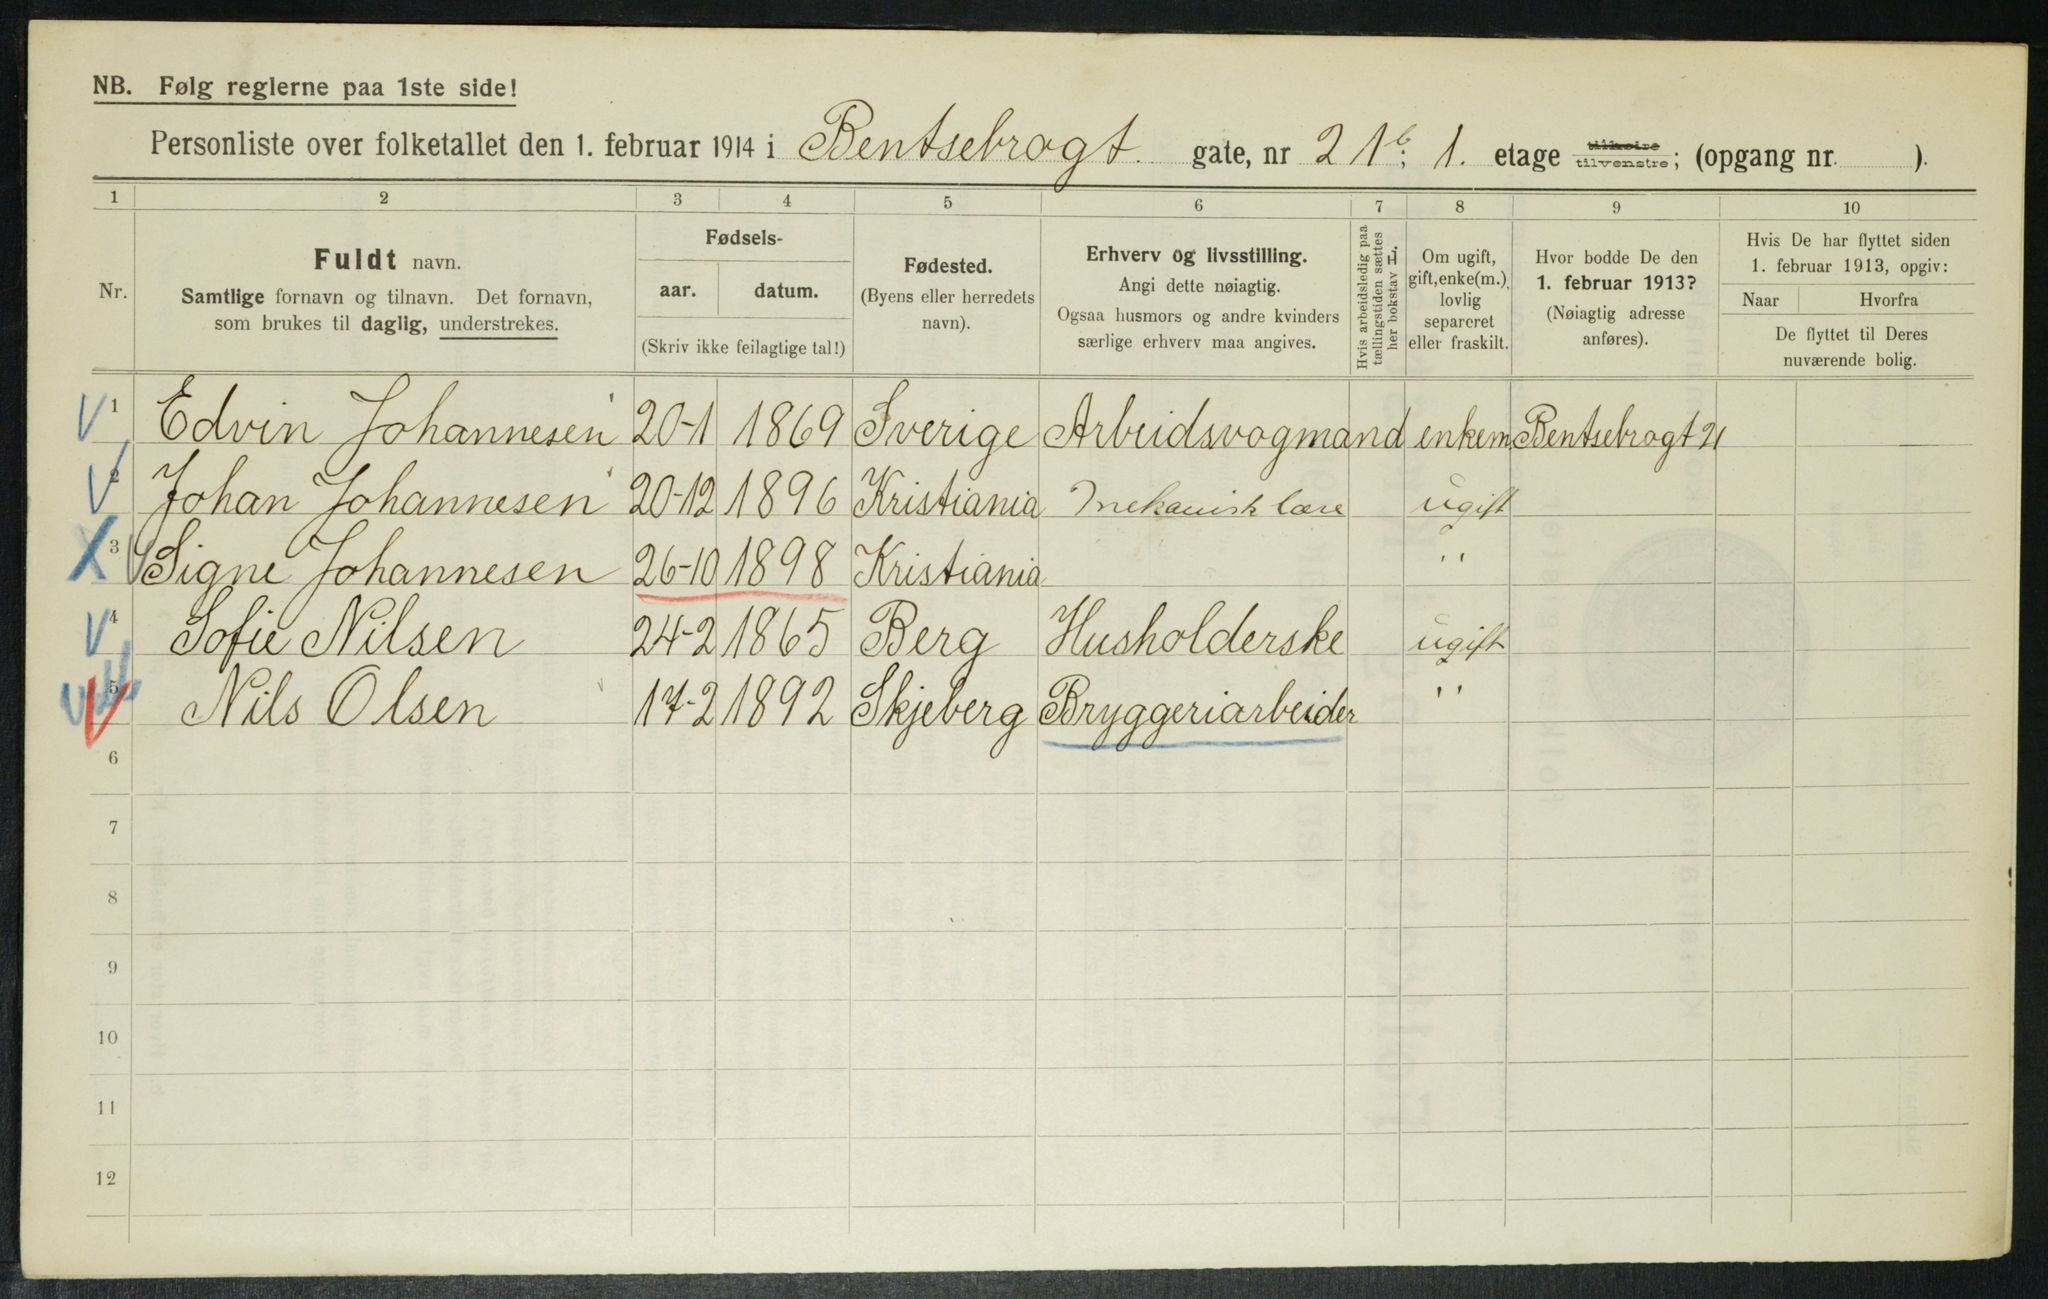 NB. Følg reglerne paa 1ste side!
Personliste over folketallet den 1. februar 1914 i Bentsebrogt. gate, nr 21b; 1. etage tilhøire tilvenstre; (opgang nr. ).
1 2 3 4 5 6 7 8 9 10
Nr.
Fuldt navn.
Samtlige fornavn og tilnavn. Det fornavn,
som brukes til daglig, understrekes.
Fødsels-
aar. datum.
(Skriv ikke feilagtige tal!)
Fødested.
(Byens eller herredets
navn).
Erhverv og livsstilling.
Angi dette nøiagtig.
Ogsaa husmors og andre kvinders
særlige erhverv maa angives.
Hvis arbeidsledig paa
tællingstiden sættes
her bokstav L.
Om ugift,
gift, enke(m.),
lovlig
separeret
eller fraskilt.
Hvor bodde De den
1. februar 1913?
(Nøiagtig adresse
anføres).
Hvis De har flyttet siden
1. februar 1913, opgiv:
Naar Hvorfra
De flyttet til Deres
nuværende bolig.
1 Edvin Johannesen 20-1 1869 Sverige Arbeidsvogmand enkem. Bentsebrogt 21
2 Johan Johannesen 20-12 1896 Kristiania mekanisk lære ugift
3 Signe Johannesen 26-10 1898 Kristiania "
4 Sofie Nilsen 24-2 1865 Berg Husholderske ugift
5 Nils Olsen 17-2 1892 Skjeberg Bryggeriarbeider "
6
7
8
9
10
11
12